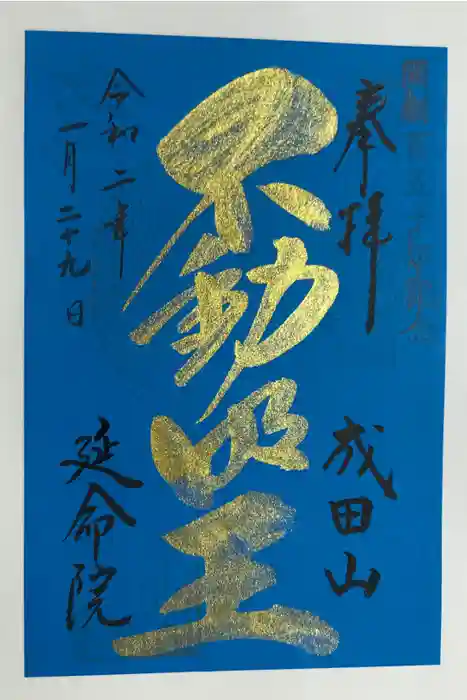 奉拝
成田山
不動明王
令和二年
一月二十九日
延命院